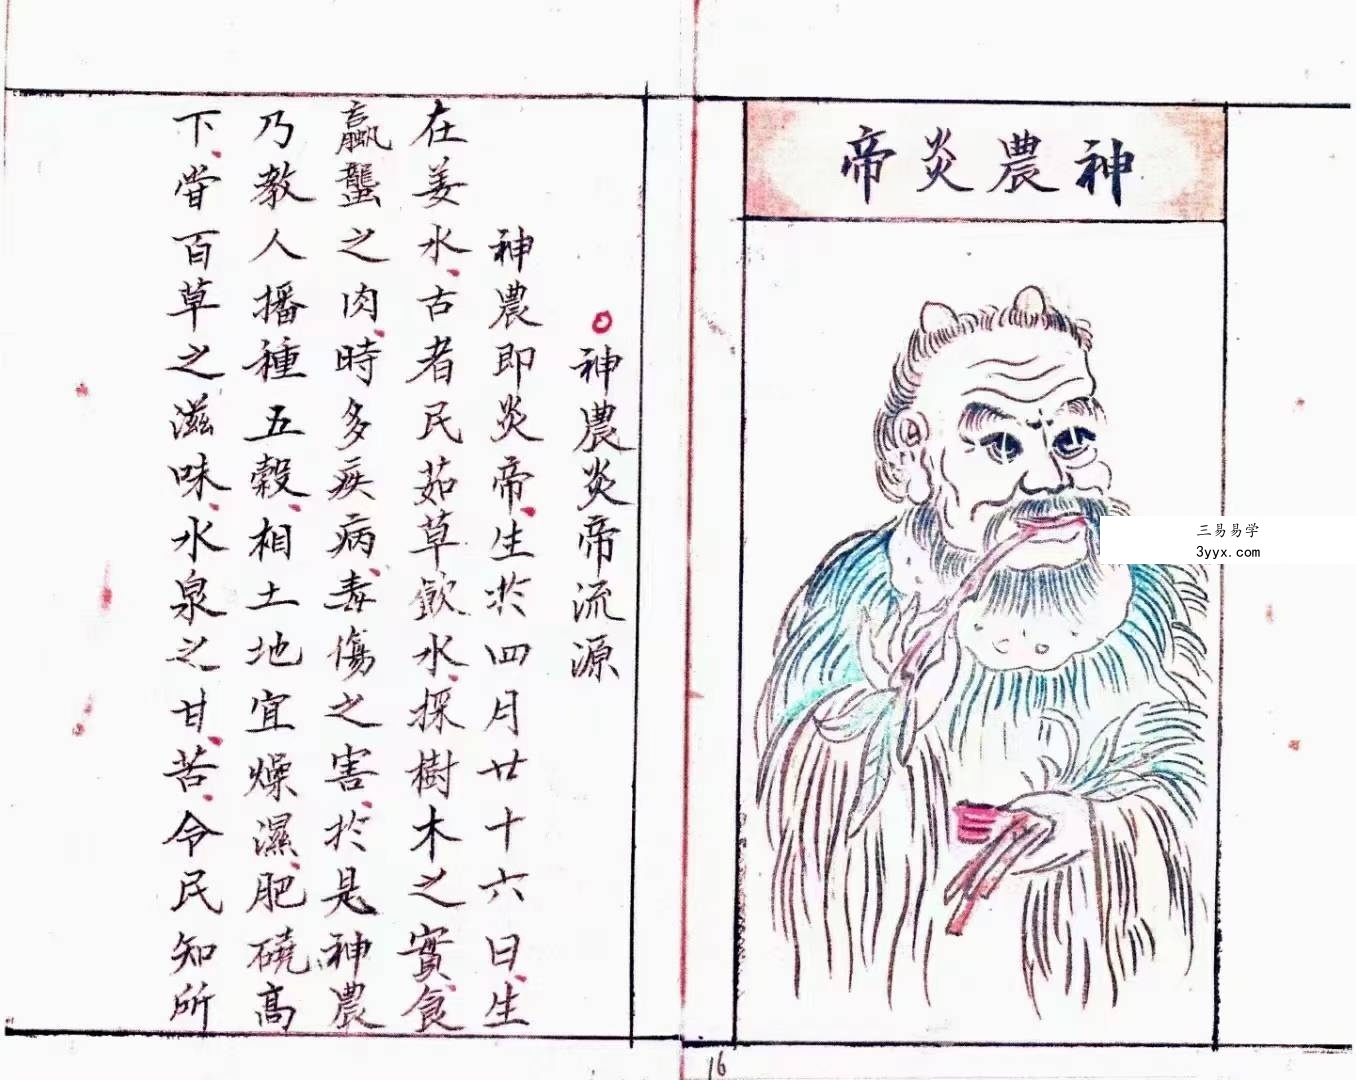 神農炎帝
三易易学
3yyx.com
○神農炎帝流源
神農即炎帝、生於四月廿十六日、生
在姜水、古者民茹草飲水、採樹木之實、食
蠃蠪之肉、時多疾病、毒傷之害、於是神農
乃教人播種五穀、相土地宜燥濕、肥磽高
下、嘗百草之滋味、水泉之甘、苦、令民知所
16